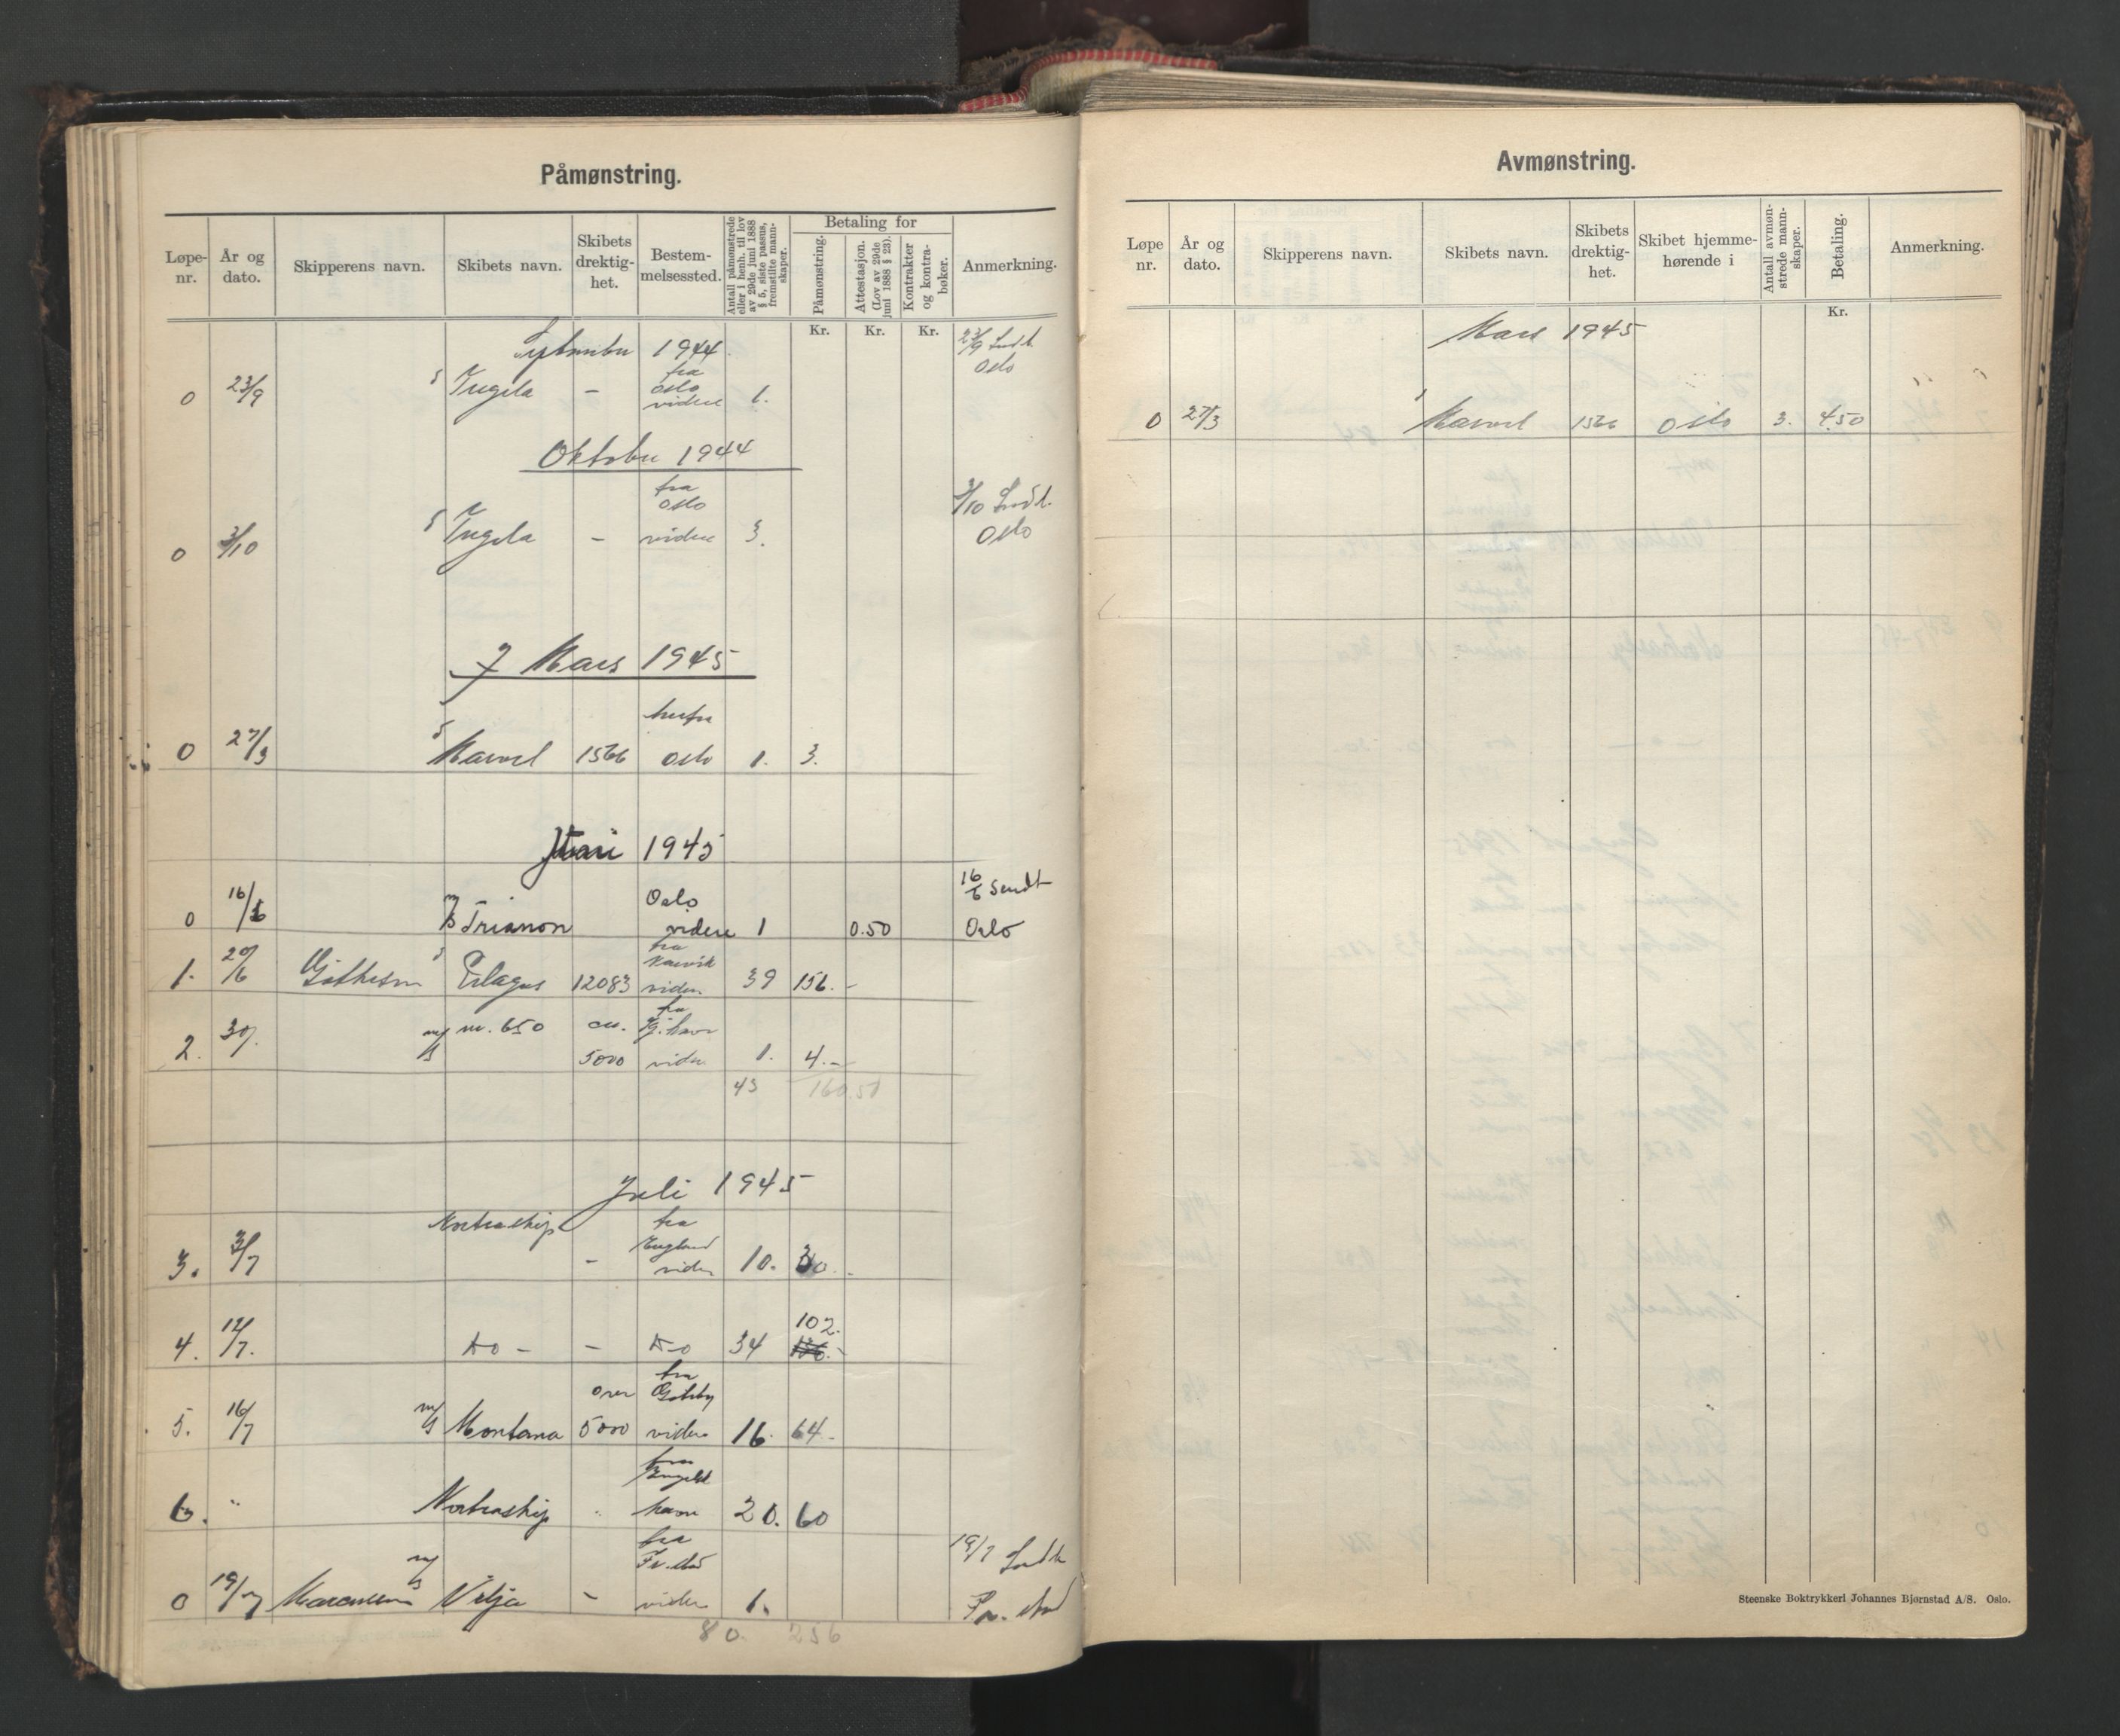 Påmønstring.
Løpe-nr. | År og dato. | Skipperens navn. | Skibets navn. | Skibets drektig-het. | Bestem-melsessted. | Antall påmønstrede eller i henh. til lov av 29de juni 1888 § 5, siste passus, fremstilte mann-skaper. | Betaling for | Påmønstring. | Attestasjon. (Lov av 29de juni 1888 § 23). | Kontrakter og kontra-bøker. | Anmerkning.
Kr. Kr. Kr.
1944 23/9 Sendt
fra Oslo
0 23/9 s Tugela – Oslo videre 1.
Oktober 1944
fra 3/10 Sendt
Oslo
0 3/10 s Tugela – videre 3. Oslo
Mars 1945
herfra
0 27/3 s Marvel 1566 Oslo 1. 3.
Juni 1945
16/6 Sendt
Oslo
0 16/6 Trianon videre 1 0.50 Oslo
fra
Narvik
1. 20/6 12083 videre 39 156.-
fra
m/s nr. 650 ca. havn
2. 30/. 5000 videre 1. 4.-
43 160.50
Juli 1945
Nortraship fra
England
3. 3/7 – videre 10. 30.-
102.
4. 12/7. do - – do 34 136.-
fra
over Gøteby
5. 16/7 m/s Montana 5000 videre 16. 64.-
fra
Engelsk
6. " Nortraship " havn 20. 60
fra 19/7 Sendt
Fr.stad
0 19/7 m/s Vilja – videre 1. Fr.stad
80. 256
Avmønstring.
Løpe nr. | År og dato. | Skipperens navn. | Skibets navn. | Skibets drektig-het. | Skibet hjemme-hørende i | Antall avmøn-strede mann-skaper. | Betaling. | Anmerkning.
Kr.
Mars 1945
0 27/3 s Marvel 1566 Oslo 3. 4.50
Steenske Boktrykkeri Johannes Bjørnstad A/S. Oslo.